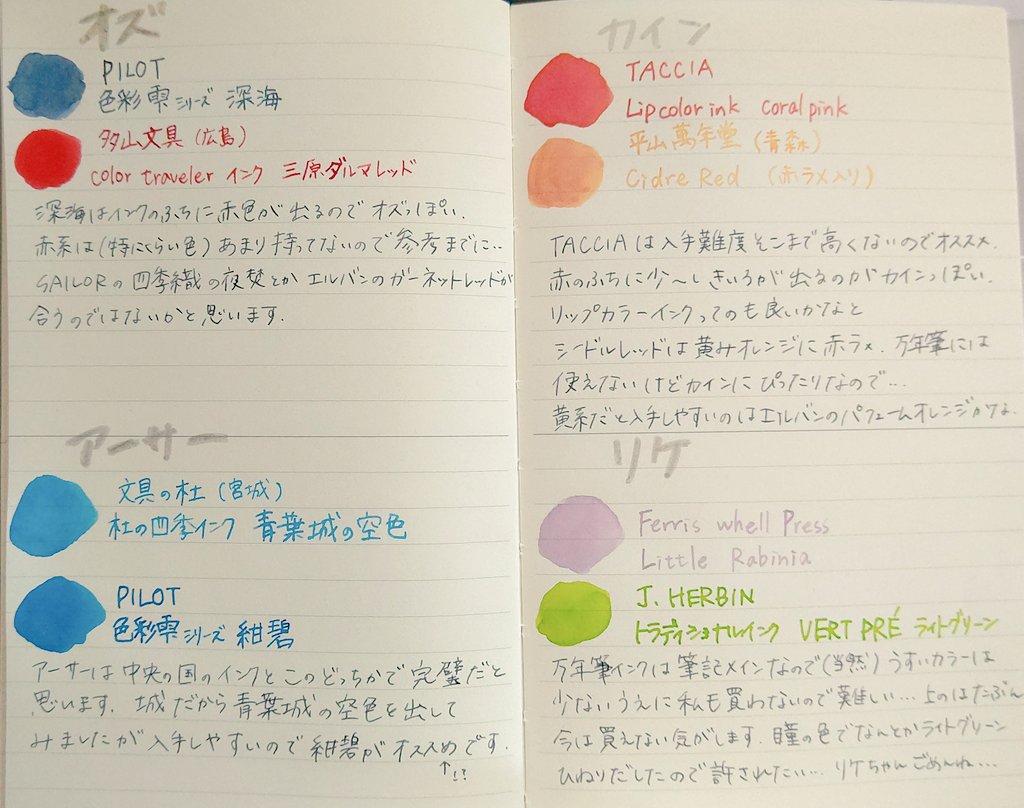 オズ
PILOT
色彩雫シリーズ 深海
多山文具(広島)
color traveler インク 三原ダルマレッド
深海はインクのふちに赤色が出るのでオズっぽい.
赤系は(特にくらい色)あまり持ってないので参考までに…
SAILORの四季織の夜焚とか エルバンのガーネットレッドが
合うのではないかと思います.
アーサー
文具の杜(宮城)
杜の四季インク 青葉城の空色
PILOT
色彩雫シリーズ 紺碧
アーサーは中央の国のインクとこのどっちかで完璧だと
思います. 城だから青葉城の空色を出して
みましたが入手しやすいので紺碧がオススめです.
↑!?
カイン
TACCIA
Lipcolor ink coral pink
平山萬年堂(青森)
Cidre Red (赤ラメ入り)
TACCIAは入手難度そこまで高くないのでオススメ.
赤のふちに少〜しきいろが出るのがカインっぽい.
リップカラーインクってのも良いかなと
シードルレッドは黄みオレンジに赤ラメ. 万年筆には
使えないけどカインにぴったりなので…
黄系だと入手しやすいのはエルバンのパフュームオレンジかな.
リケ
Ferris whell Press
Little Rabinia
J. HERBIN
トラディショナルインク VERT PRÉ ライトグリーン
万年筆インクは筆記メインなので(当然)うすいカラーは
少ないうえに私も買わないので難しい… 上のはたぶん
今は買えない気がします. 瞳の色でなんとかライトグリーン
ひねりだしたので許されたい… リケちゃんごめんね…